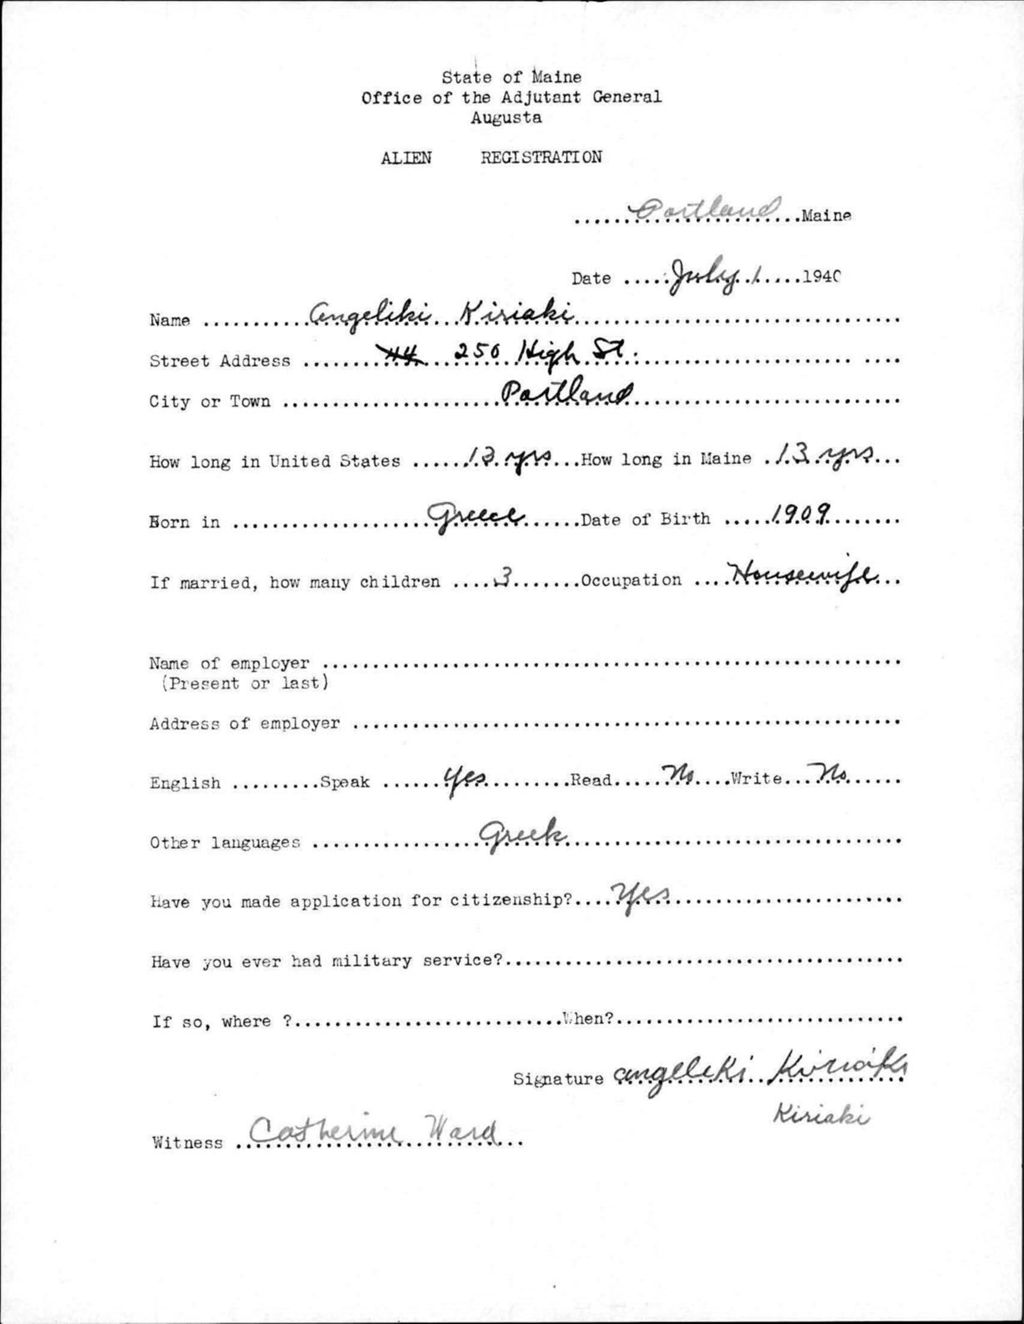 State of Maine
Office of the Adjutant General
Augusta
ALIEN REGISTRATION
......Portland......Maine
Date .....July 1.....1940
Name ...........Angeliki Kiriaki...........
Street Address ........ 250 High St...........
City or Town ...........Portland...........
How long in United States ......13 yrs...How long in Maine ..13 yrs...
Born in ...........Greece......Date of Birth .....1909........
If married, how many children ....3.......Occupation ....Housewife...
Name of employer ...........
(Present or last)
Address of employer ...........
English .........Speak ......yes.........Read.....No....Write...No......
Other languages ...........Greek...........
Have you made application for citizenship?....Yes...........
Have you ever had military service?...........
If so, where ?...........When?...........
Signature angeleki Kiriaki
Kiriaki
Witness ..Catherine Ward...